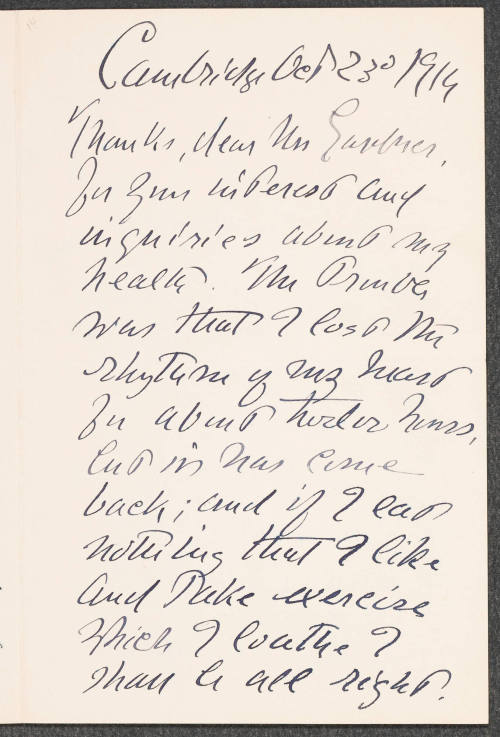 Cambridge Oct 23d 1914
Thanks, dear Mrs Gardner,
for your interest and
inquiries about my
health. The trouble
was that I lost the
rhythm of my heart
for about twelve hours,
but it has come
back; and if I eat
nothing that I like
and take exercise
which I loathe I
shall be all right.